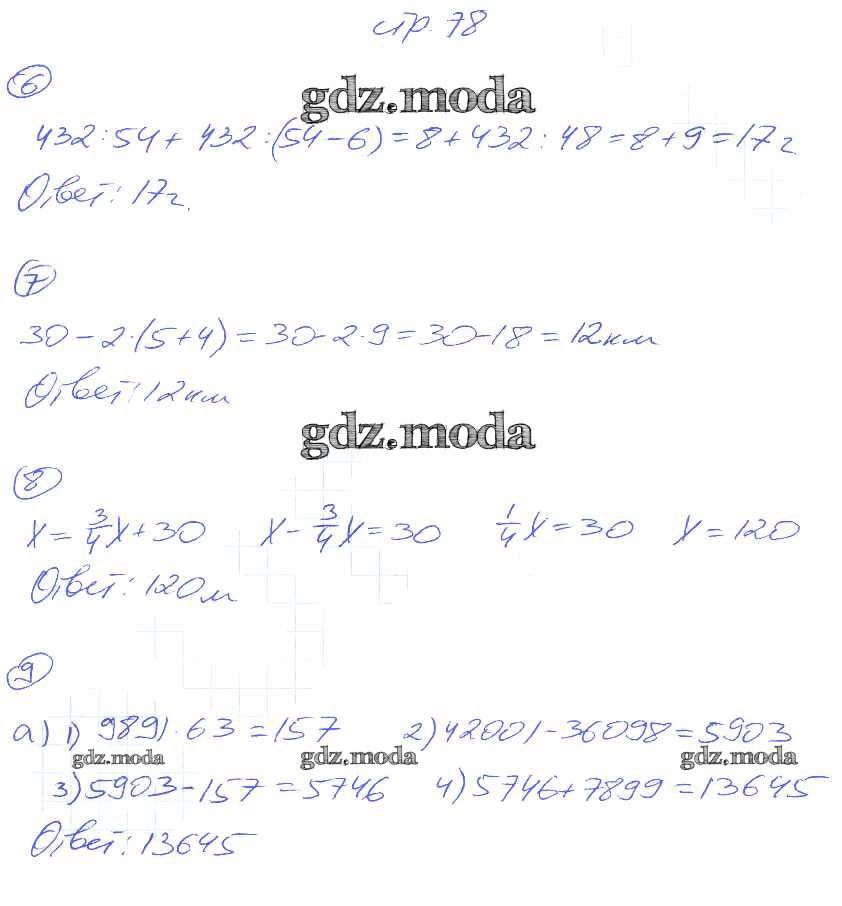 стр. 78
6
gdz.moda
432:54+ 432:(54-6)=8+432:48=8+9=17г.
Ответ: 17г.
7
30-2·(5+4)=30-2·9=30-18=12км
Ответ: 12км
gdz.moda
8
x=3/4x+30 x-3/4x=30 1/4x=30 x=120
Ответ: 120м
9
а) 1) 9891·63=157 2) 42001-36098=5903
gdz.moda gdz.moda gdz.moda
3) 5903-157=5746 4) 5746+7899=13645
Ответ: 13645